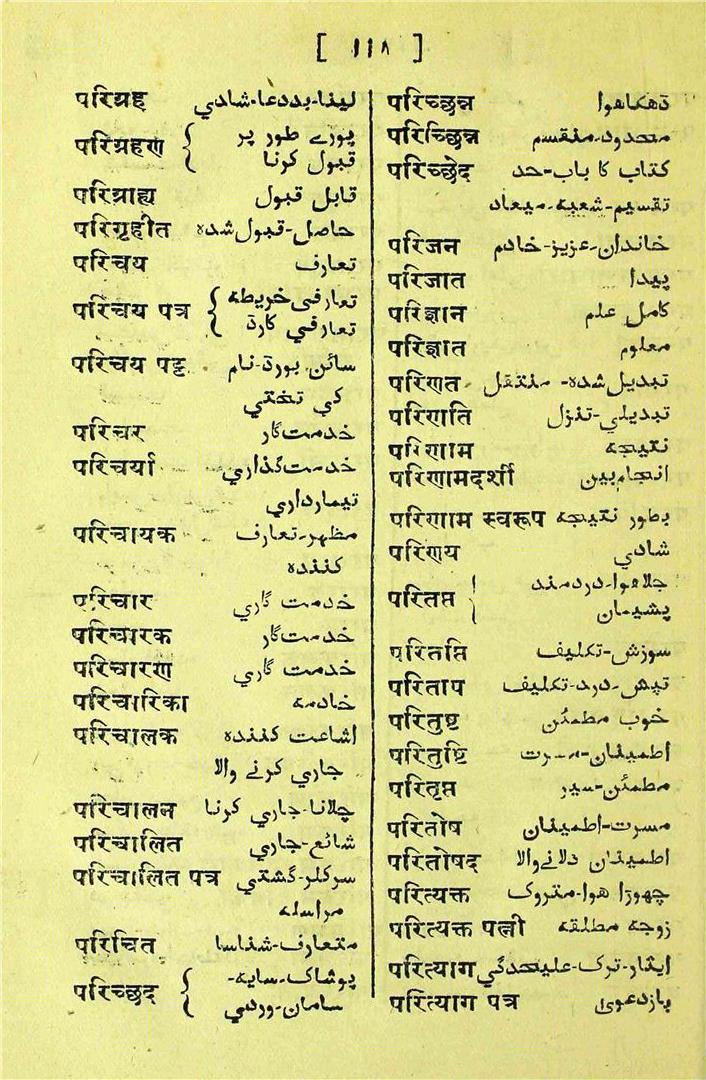 [ ۱۱۸ ]
परिग्रह لینا-بددعا-شادي
परिग्रहण { پورے طور پر
قبول کرنا
परिग्राह्य قابل قبول
परिगृहीत حاصل-قبول شدہ
परिचय تعارف
परिचय पत्र { تعارفی خریطہ
تعارفي کارڈ
परिचय पट्ट سائن بورڈ-نام
کي تختي
परिचर خدمت گار
परिचर्या خدمت گذاري
تیمارداري
परिचायक مظہر-تعارف
کنندہ
परिचार خدمت گاري
परिचारक خدمت گار
परिचारण خدمت گاري
परिचारिका خادمہ
परिचालक اشاعت کنندہ
جاري کرنے والا
परिचालन چلانا-جاري کرنا
परिचालित شائع-جاري
परिचालित पत्र سرکلر-گشتي
مراسلہ
परिचित متعارف-شناسا
परिच्छद { پوشاک-سایہ-
سامان-وردي
परिच्छन्न ڈھکا ھوا
परिच्छिन्न محدود-منقسم
परिच्छेद کتاب کا باب-حد
تقسیم-شعبہ-میعاد
परिजन خاندان-عزیز-خادم
परिजात پیدا
परिज्ञान کامل علم
परिज्ञात معلوم
परिणत تبدیل شدہ-منتقل
परिणति تبدیلي-تنزل
परिणाम نتیجہ
परिणामदर्शी انجام بین
परिणाम स्वरूप بطور نتیجہ
परिणय شادي
परितप्त { جلا ھوا-دردمند
پشیمان
परितप्ति سوزش-تکلیف
परिताप تپش-درد-تکلیف
परितुष्ट خوب مطمئن
परितुष्टि اطمینان-مسرت
परितृप्त مطمئن-سیر
परितोष مسرت-اطمینان
परितोषद اطمینان دلانے والا
परित्यक्त چھوڑا ھوا-متروک
परित्यक्त पत्नी زوجہ مطلقہ
परित्याग ایثار-ترک-علیحدگي
परित्याग पत्र بازدعوی